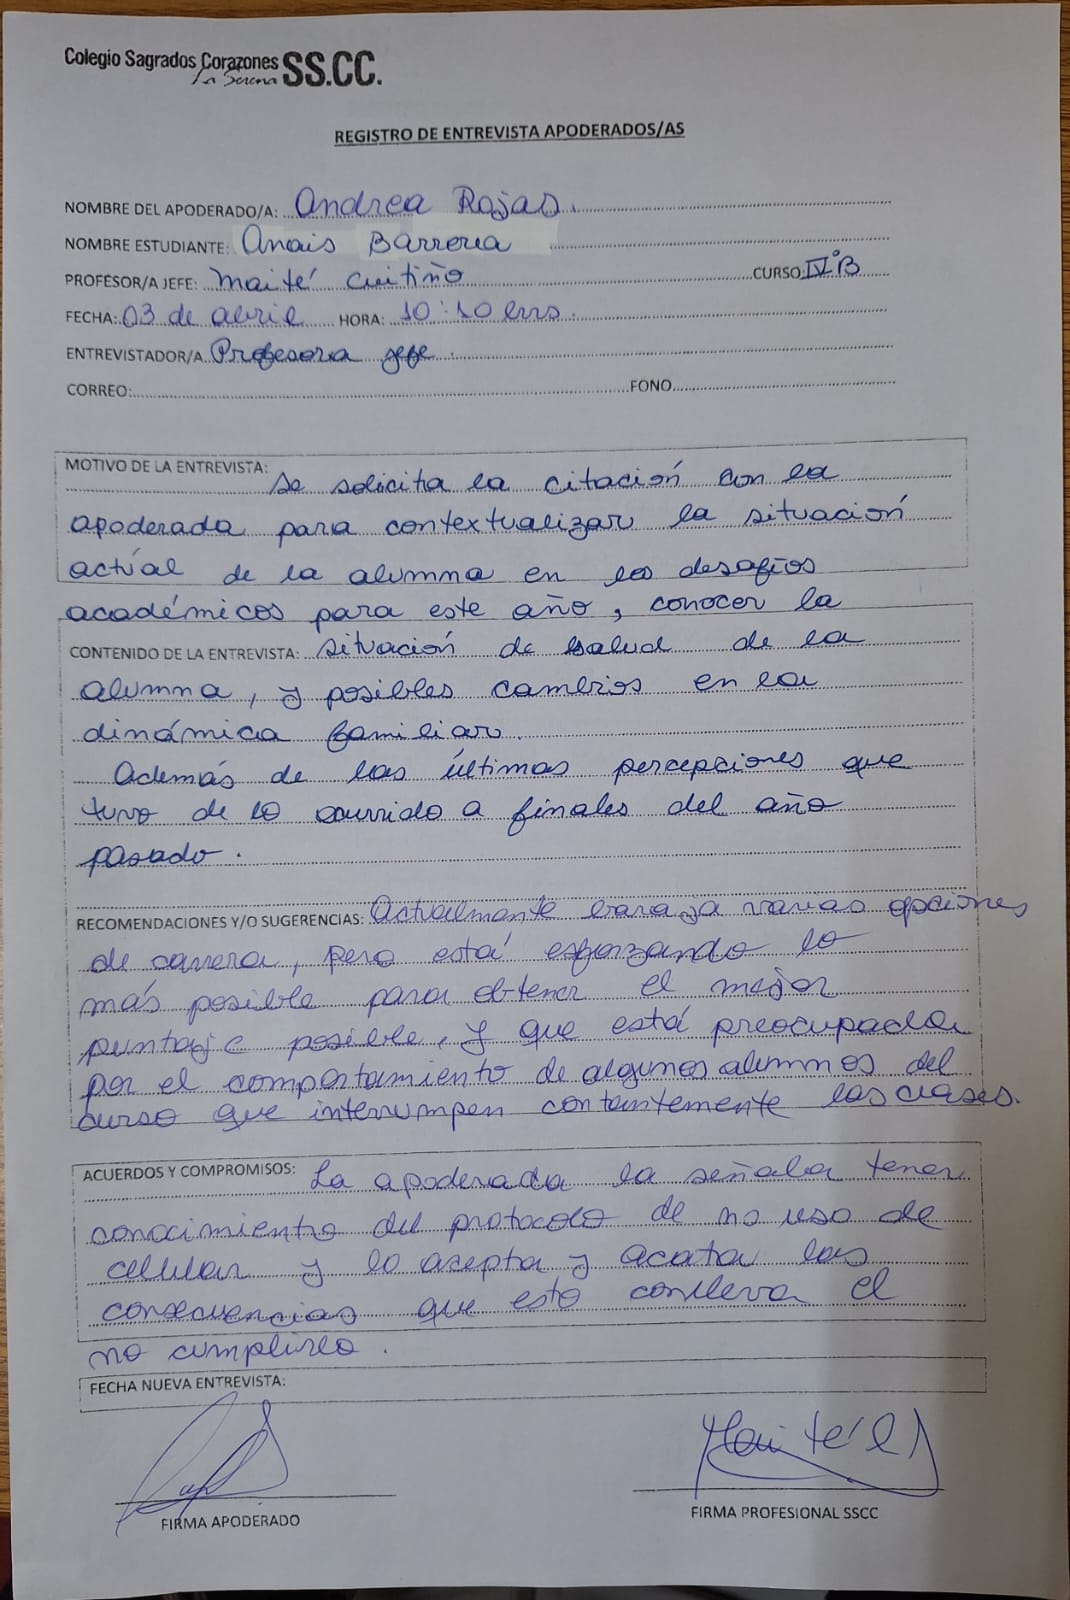 Colegio Sagrados Corazones SS.CC.
La Serena
REGISTRO DE ENTREVISTA APODERADOS/AS
NOMBRE DEL APODERADO/A: Andrea Rojas.
NOMBRE ESTUDIANTE: Anais Barrera
PROFESOR/A JEFE: Maité Cuitiño CURSO: IV°B
FECHA: 03 de abril HORA: 10:10 hrs.
ENTREVISTADOR/A Profesora jefe.
CORREO: FONO
MOTIVO DE LA ENTREVISTA: Se solicita la citación con la
apoderada para contextualizar la situación
actual de la alumna en los desafíos
académicos para este año, conocer la
CONTENIDO DE LA ENTREVISTA: situación de salud de la
alumna, y posibles cambios en la
dinámica familiar.
Además de las últimas percepciones que
tuvo de lo ocurrido a finales del año
pasado.
RECOMENDACIONES Y/O SUGERENCIAS: Actualmente baraja varias opciones
de carrera, pero está esforzando lo
más posible para obtener el mejor
puntaje posible, y que está preocupada
por el comportamiento de algunos alumnos del
curso que interrumpen contantemente las clases.
ACUERDOS Y COMPROMISOS: La apoderada la señala tener
conocimiento del protocolo de no uso de
celular y lo acepta y acata las
consecuencias que esto conlleva el
no cumplirlo.
FECHA NUEVA ENTREVISTA:
FIRMA APODERADO
FIRMA PROFESIONAL SSCC